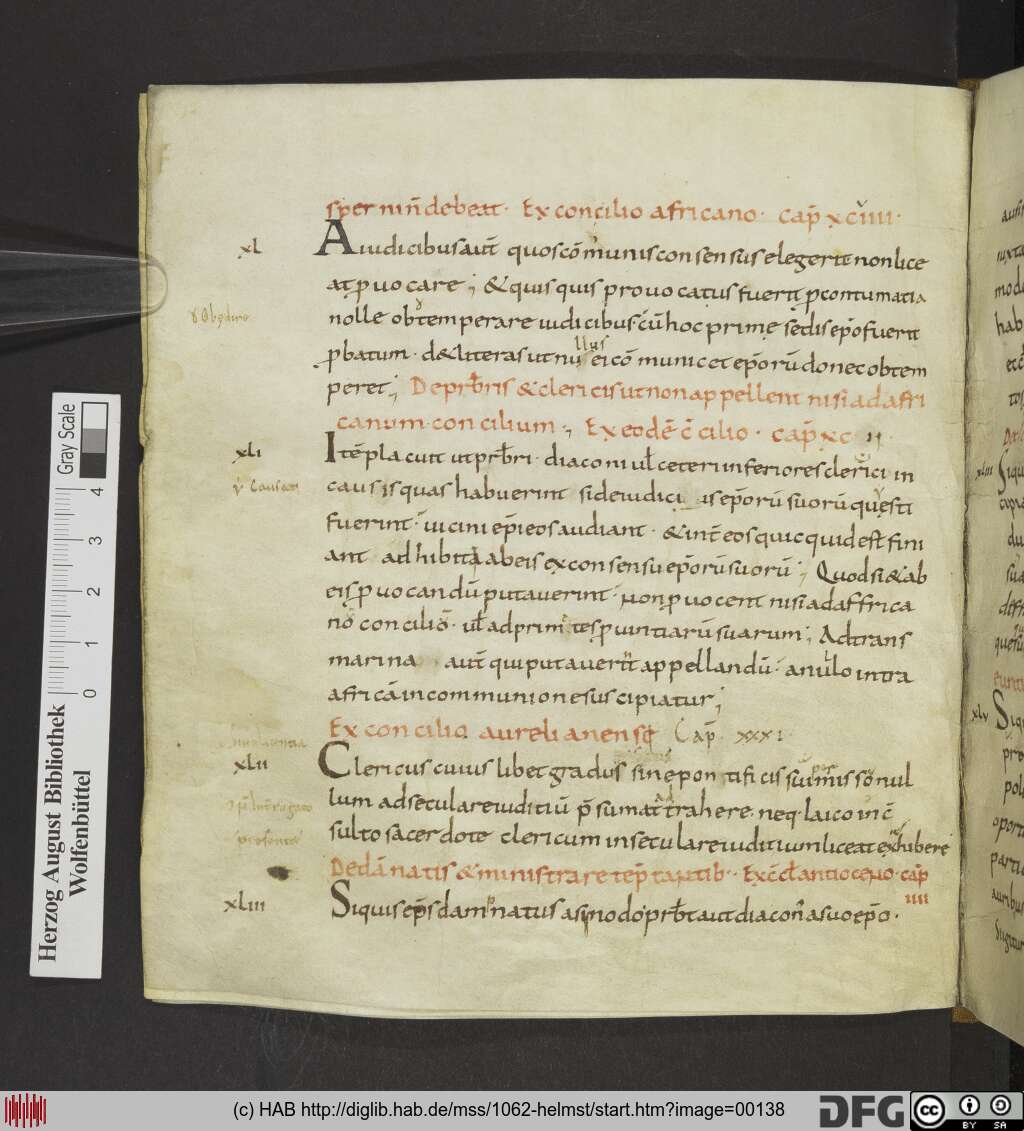 sper nin̄ debeat· Ex concilio africano· cap̄ xcviiii·
xl
A iudicibus aut̄ quos cōmunis consensus elegerit non lice
at ꝓuocare; & quisquis prouocatus fuerit ꝑ contumatia
nolle obtemperare iudicibus· cū hoc prime sedis ep̄o fuerit
ꝓbatum· det literas ut nullus ei cōmunicet ep̄orū donec obtem
peret; De prb̄ris & clericis ut non appellent nisi ad afri
canum concilium; Ex eodē c̄cilio· cap̄ xc ii·
xli
Itē placuit ut prb̄ri· diaconi ul̄ ceteri inferiores clerici in
causis quas habuerint si de iudiciis ep̄orū suorū questi
fuerint· uicini ep̄i eos audiant· & int̄ eos quicquid est fini
ant adhibita ab eis ex consensu ep̄orū suorū; Quod si & ab
eis ꝓuocandū putauerint· non ꝓuocent nisi ad affrica
nō conciliō· ul̄ ad primates ꝓuintiarū suarum; Ad trans
marina aut̄ qui putauerit appellandū· a nullo intra
africā in communione suscipiatur;
Ex concilio aurelianense Cap̄ xxxi
xlii
Clericus cuius libet gradus sine pontificis sui ꝑmisso nul
lum ad seculare iuditiū p̄sumat trahere· neq· laico inc̄
sulto sacerdote clericum in seculare iuditium liceat exhibere
De dāmnatis & ministrare temptantib·· Ex c̄cl̄ antioceno· cap̄
iiii
xliii
Siquis ep̄s damnatus a sinodo· prb̄t aut diacon̄ a suo ep̄o·
Gray Scale
0 1 2 3 4
Herzog August Bibliothek
Wolfenbüttel
(c) HAB http://diglib.hab.de/mss/1062-helmst/start.htm?image=00138
DFG
cc
BY SA